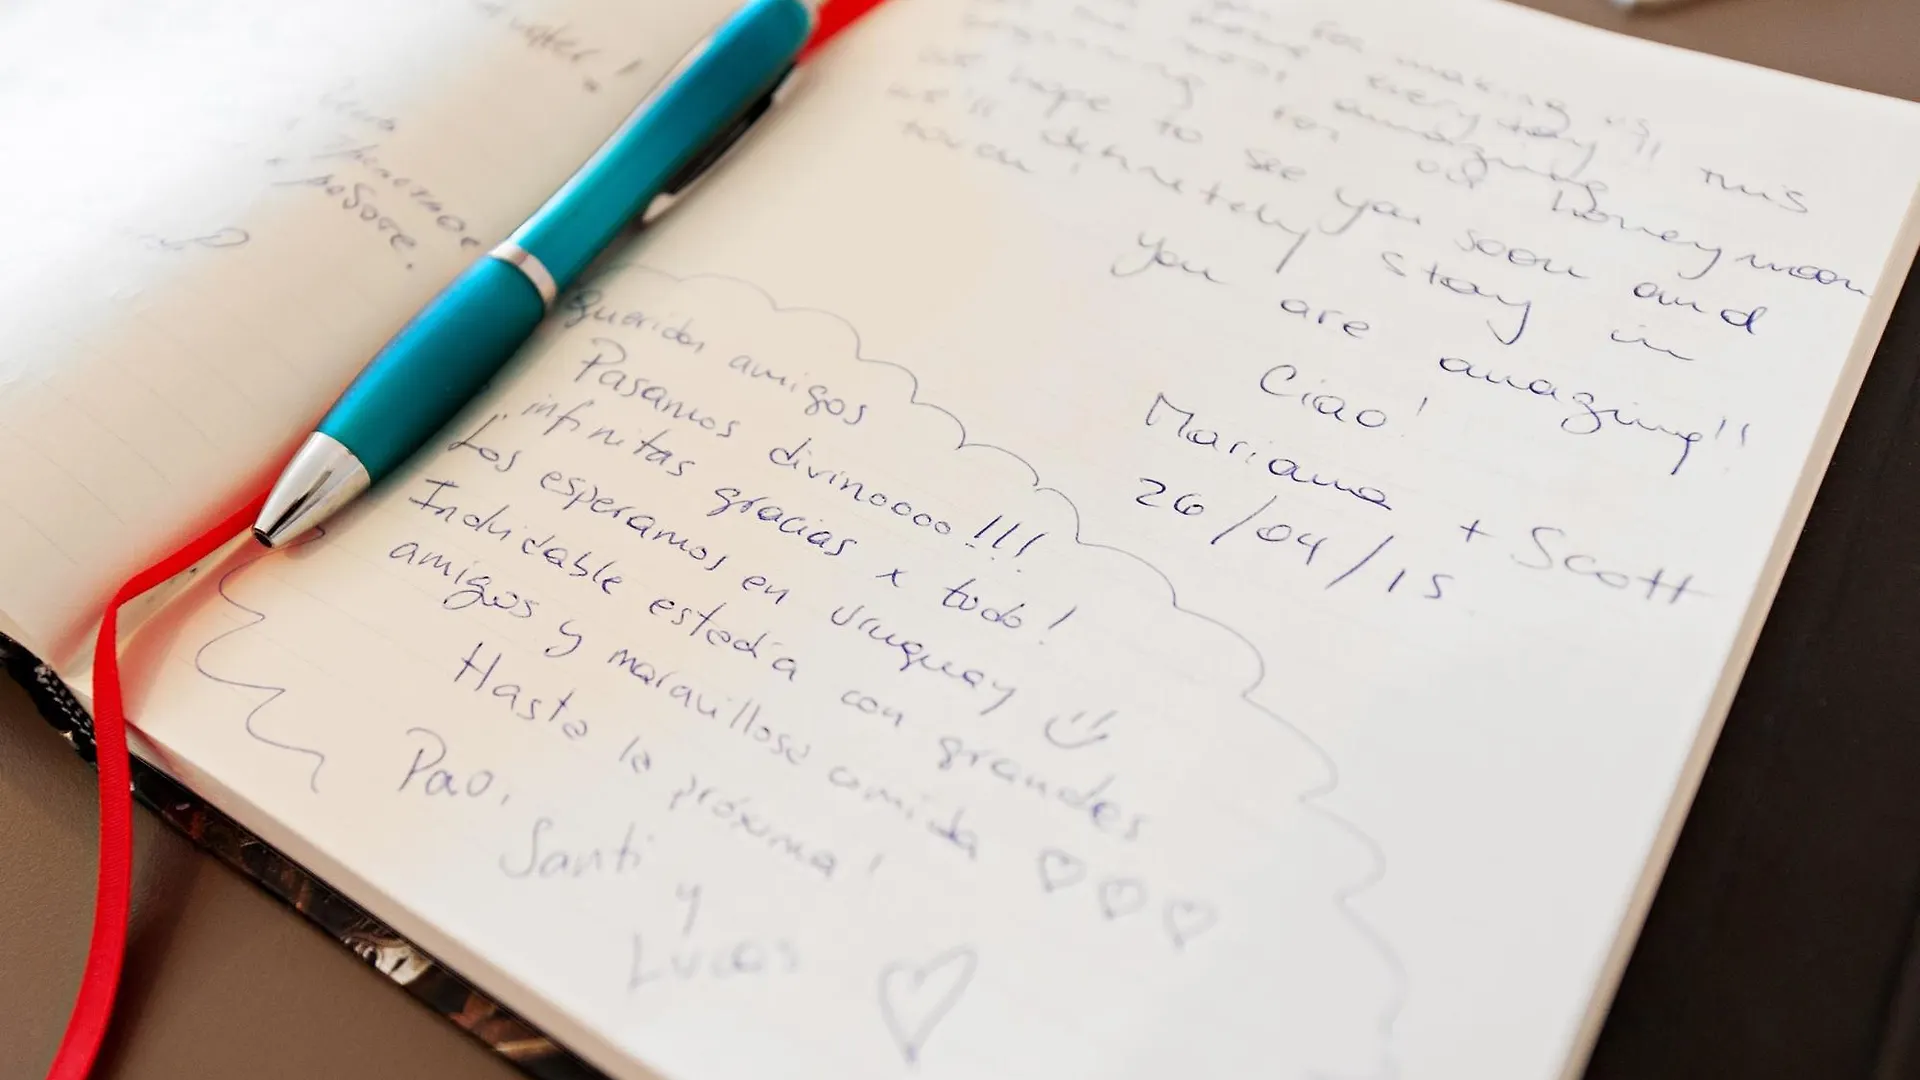 water!
for making us
home everyday!! This
most amazing
beginning for our honeymoon
we hope to see you soon and
we'll definetely stay in
touch!
you are amazing!!
Ciao!
Mariana + Scott
26/04/15
Queridos amigos
Pasamos divinoooo!!!
infinitas gracias x todo!
Los esperamos en Uruguay
Indudable estadía con grandes
amigos y maravillosa comida ♡♡♡
Hasta la próxima!
Pao,
Santi
y
Lucas ♡